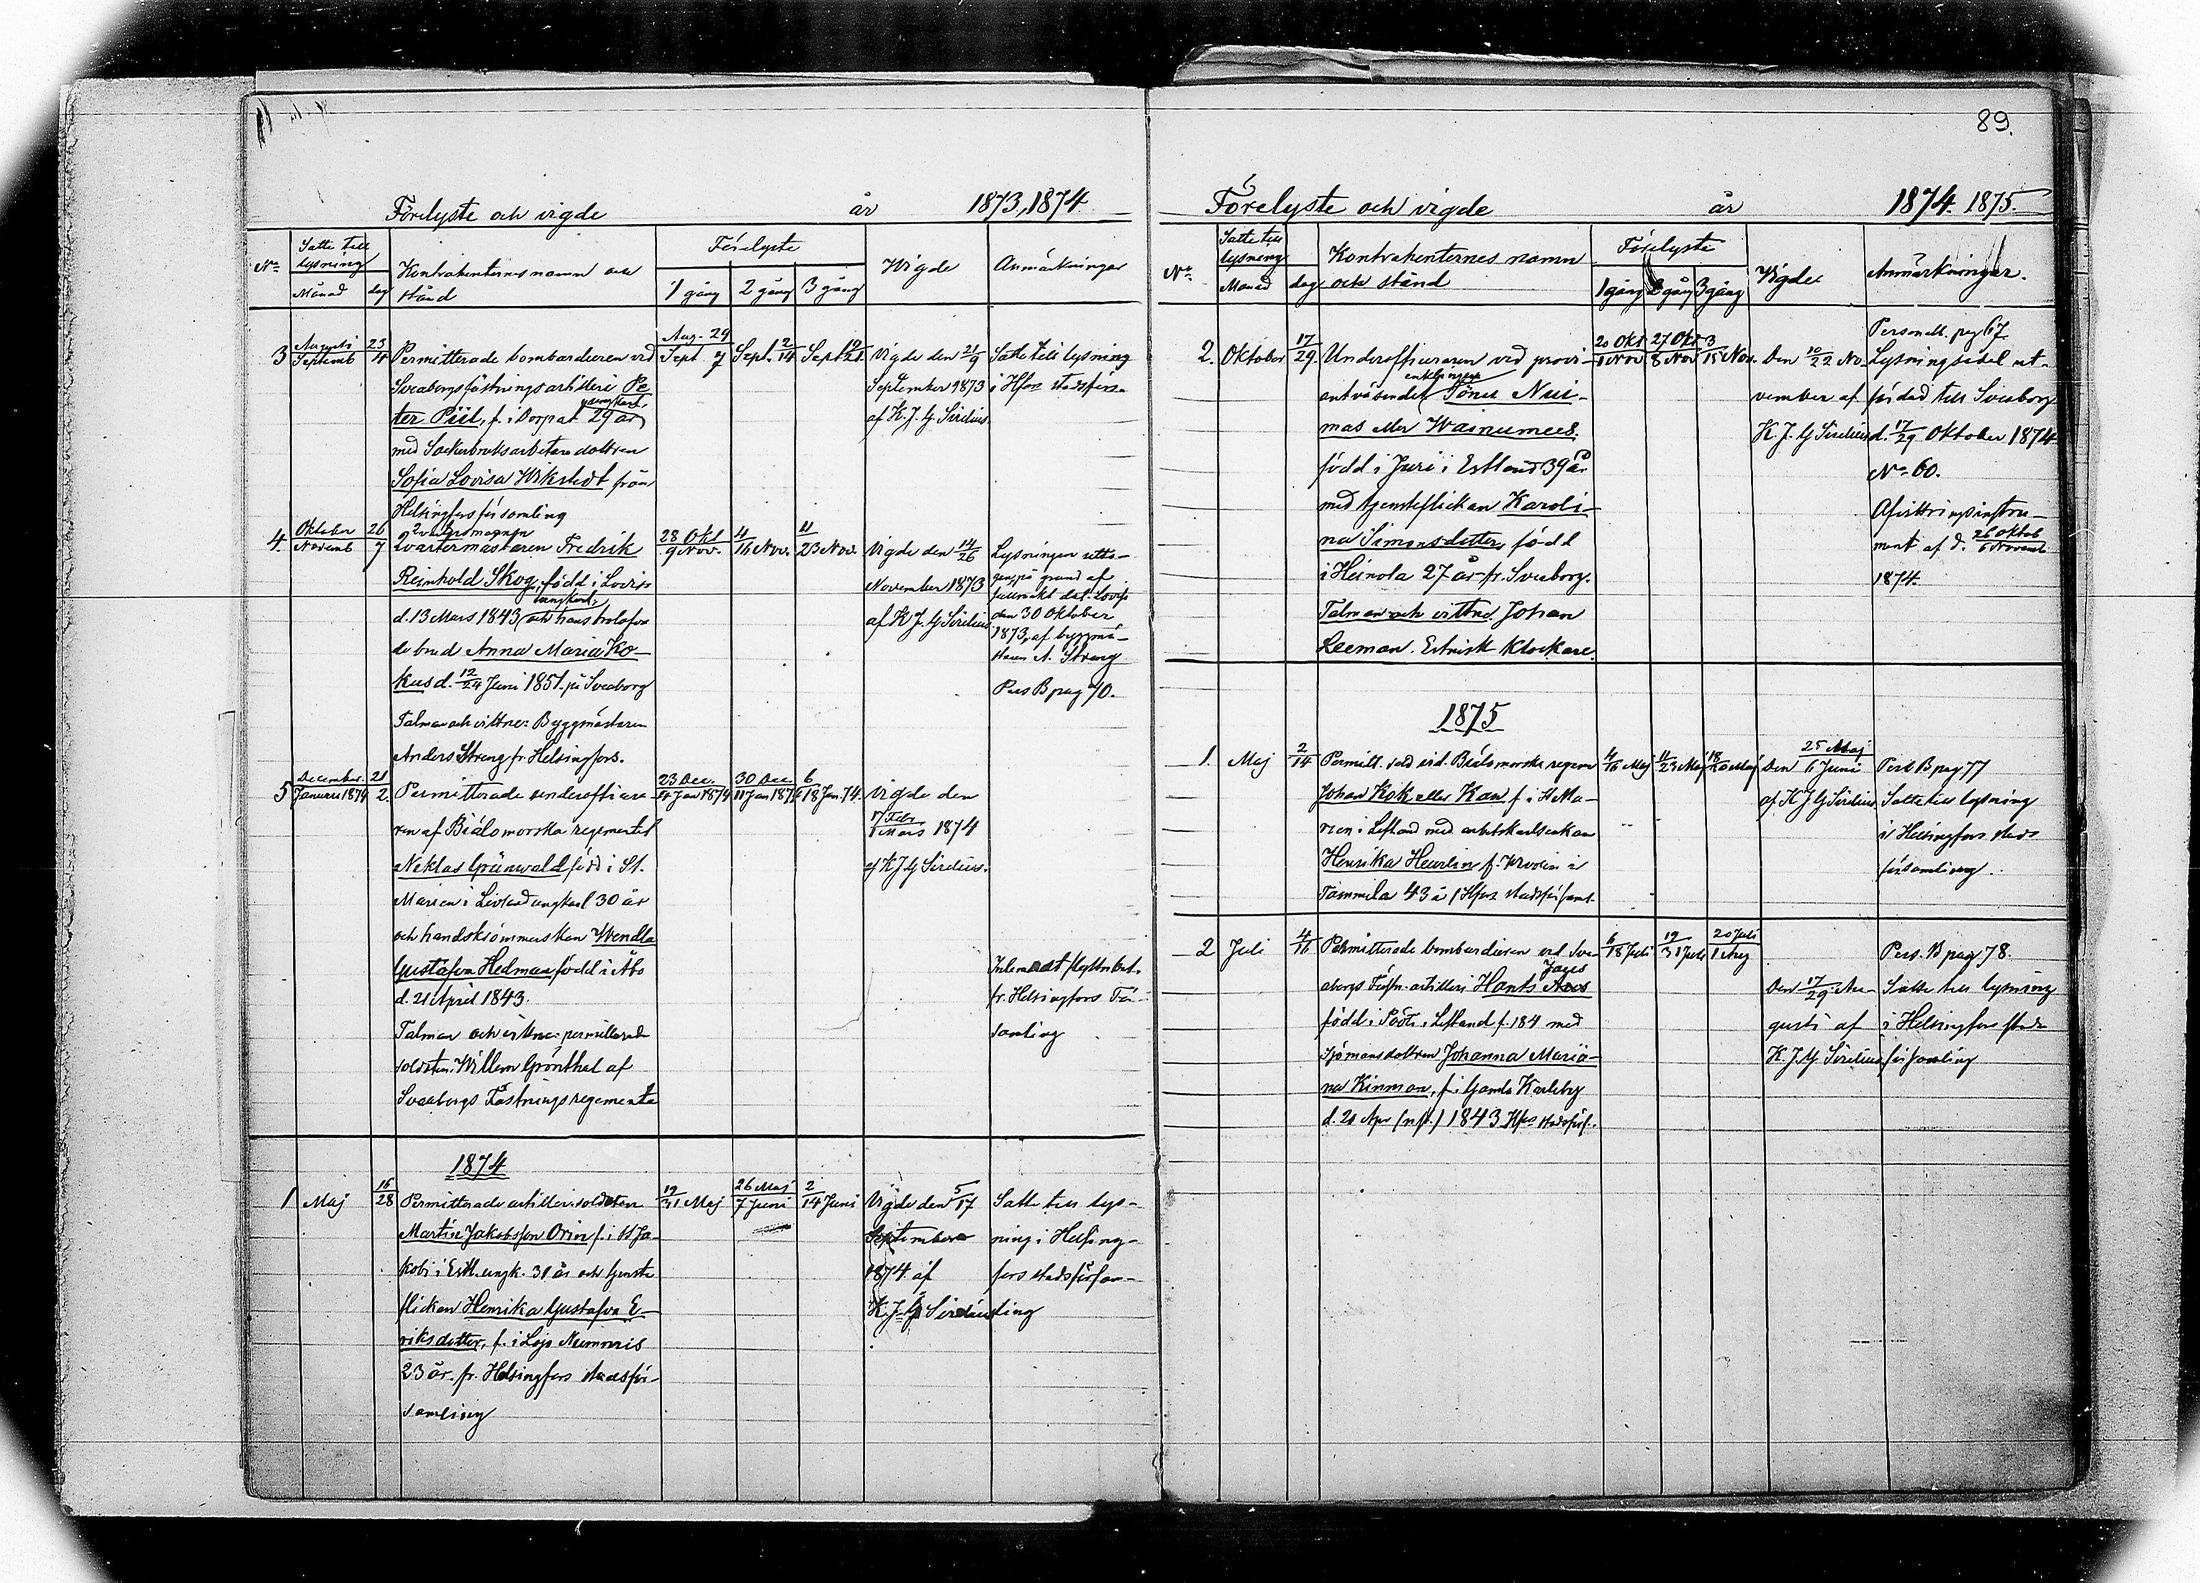 89.
Förelyste och vigde år 1873, 1874.
No Satte till lysning Kontrahenternes namn och stånd Förelyste Vigde Anmärkningar
Månad dag 1 gång 2 gång 3 gång
3 Augusti 23 / Septemb 4
Permitterade bombardieren vid
Sveaborgs fästningsartilleri Pe-
ter Piil, f. i Dorpat 29 år
ungkarl,
med Sockerbruksarbetaredottren
Sofia Lovisa Wikstedt från
Helsingfors församling
Aug. 29 / Sept 7
Sept. 2/14
Sept
Vigde den 21/9
September 1873
af K. J. G. Sirelius.
Satte till lysning
i Hfors stadsförs.
4. Oktober 26 / Novemb 7
qvartermästaren Fredrik
Reinhold Skog, född i Lovisa
ungkarl,
d. 13 Mars 1843, och hans trolofva-
de brud Anna Maria Ko-
kus d. 12/24 Juni 1851. på Sveaborg
Talman och vittne: Byggmästaren
Anders Streng fr. Helsingfors.
28 Okt / 9 Nov.
4/16 Nov.
11/23 Nov.
Vigde den 14/26
November 1873
af K. J. G Sirelius
Lysningen utta-
gen på grund af
fullmakt dat. Lovisa
den 30 Oktober
1873, af byggmä-
staren A. Streng
Pers B pag 70.
5 December 21 / Januari 1874 2.
Permitterade underofficera-
ren af Bialomorska regementet
Niklas Grünwald född i St.
Marien i Livland ungkarl 30 år
och handsksömmerskan Wendla
Gustafva Hedman född i Åbo
d. 21 April 1843.
Talman och vittne: permitterade
soldaten Willem Grönthal af
Sveaborgs Fästningsregemente
23 Dec. / 4 Jan 1874
30 Dec. / 11 Jan 1874
6/18 Jan. 74.
Vigde den
17 Febr / 1 Mars 1874
af K J G Sirelius.
Inlemnat flyttn.bet.
fr. Helsingfors För-
samling
1874
1 Maj 16/28
Permitterade artillerisoldaten
Martin Jakobsson Orin f. i St Ja-
kobi i Estl. ungk. 31 år och tjenste
flickan Henrika Gustafva E-
riksdotter, f. i Lojo Nummis
23 år. fr. Helsingfors stadsför-
samling
19/31 Maj
26 Maj / 7 Juni
2/14 Juni
Vigde den 5/17
September
1874 af
K. J. G Sirelius
Satte till lys-
ning i Helsing-
fors stadsförsam-
ling
Förelyste och vigde år 1874. 1875.
No Satte till lysning Kontrahenternes namn och stånd Förelyste Vigde Anmärkningar.
Månad dag 1 gång 2 gång 3 gång
2. Oktober 17/29.
Underofficeraren vid provi-
antväsendet Tönu Nui-
enklingen
mas eller Wainumees.
född i Juri i Estland 39 år
med tjensteflickan Karoli-
na Simonsdotter, född
i Heinola 27 år fr. Sveaborg.
Talman och vittne. Johan
Leeman. Estnisk Klockare.
20 Okt / 1 Nov
27 Okt / 8 Nov
3/15 Nov.
Den 10/22 No-
vember af
K. J. G Sirelius
Personalb. pag 67.
Lysningsedel ut-
färdad till Sveaborg
d. 17/29 Oktober 1874
No 60.
Afvittringsinstru-
ment af d. 26 Oktob / 6 Novemb
1874.
1875
1. Maj 2/14
Permitt. sold vid. Bialomorska regem
Johan Kok eller Kan f. i St Ma-
rien i Lifland med arbetskarlsenkan
Henrika Heurlin f.
Tammila 43 å / Hfors stadsförsaml.
4/16 Maj
11/23 Maj
18/30 Maj
Den 25 Maj / 6 Juni
af K J G Sirelius
Pers B pag 77
Satte till lysning
i Helsingfors stads
församling.
2 Juli 4/16
Permitterade bombardieren vid Sve-
aborgs Fästn. artilleri Hants
född i Lifland f. 184 med
Sjömansdottren Johanna Maria-
na Kinman, f. i Gamla Karleby
d. 21 Apr (n/st.) 1843 Hfors stadsförs.
6/18 Juli
19/31 Juli
20 Juli / 1 Aug
Den 17/29 Au-
gusti af
K. J. G Sirelius
Pers. B pag 78.
Satte till lysning
i Helsingfors stads
församling